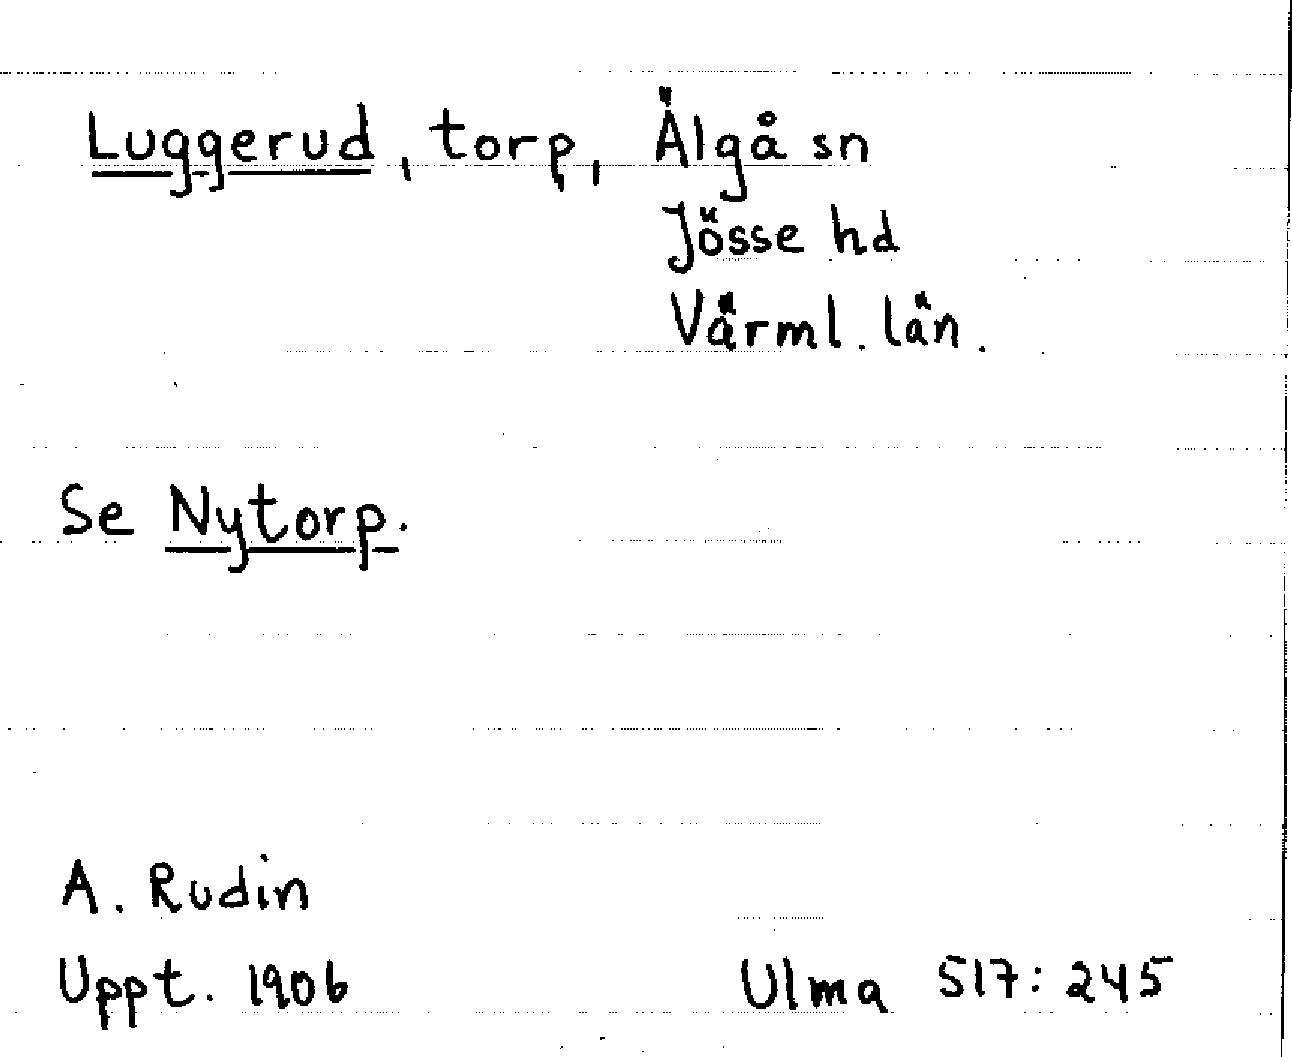 Luggerud, torp, Älgå sn
Jösse hd
Värml. län.
Se Nytorp.
A. Rudin
Uppt. 1906
Ulma 517:245